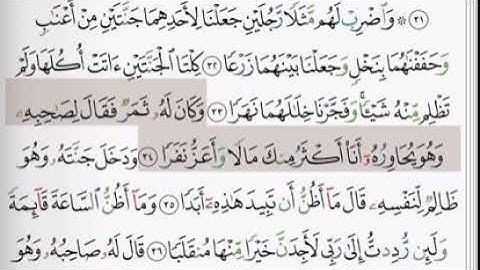 ٣١ ۞ وَٱضْرِبْ لَهُم مَّثَلًا رَّجُلَيْنِ جَعَلْنَا لِأَحَدِهِمَا جَنَّتَيْنِ مِنْ أَعْنَٰبٍ
وَحَفَفْنَٰهُمَا بِنَخْلٍ وَجَعَلْنَا بَيْنَهُمَا زَرْعًا ٣٢ كِلْتَا ٱلْجَنَّتَيْنِ ءَاتَتْ أُكُلَهَا وَلَمْ
تَظْلِم مِّنْهُ شَيْـًٔا ۚ وَفَجَّرْنَا خِلَٰلَهُمَا نَهَرًا ٣٣ وَكَانَ لَهُۥ ثَمَرٌ فَقَالَ لِصَٰحِبِهِۦ
وَهُوَ يُحَاوِرُهُۥٓ أَنَا۠ أَكْثَرُ مِنكَ مَالًا وَأَعَزُّ نَفَرًا ٣٤ وَدَخَلَ جَنَّتَهُۥ وَهُوَ
ظَالِمٌ لِّنَفْسِهِۦ قَالَ مَآ أَظُنُّ أَن تَبِيدَ هَٰذِهِۦٓ أَبَدًا ٣٥ وَمَآ أَظُنُّ ٱلسَّاعَةَ قَآئِمَةً
وَلَئِن رُّدِدتُّ إِلَىٰ رَبِّى لَأَجِدَنَّ خَيْرًا مِّنْهَا مُنقَلَبًا ٣٦ قَالَ لَهُۥ صَاحِبُهُۥ وَهُوَ